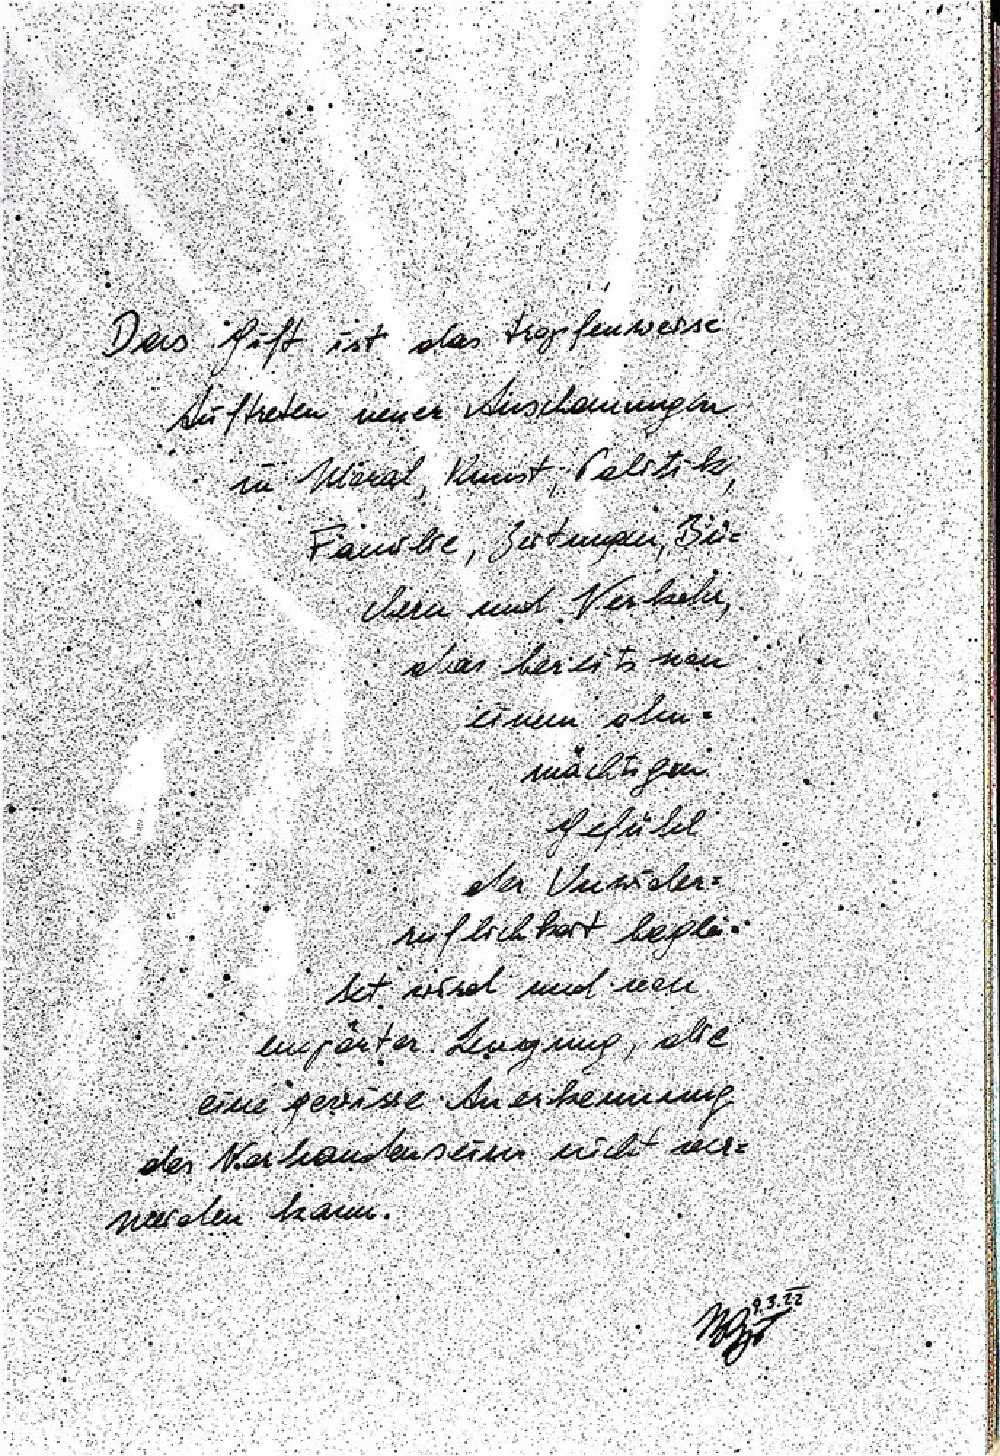 Das Gift ist das tropfenweise
Auftreten neuer Anschauungen
in Moral, Kunst, Politik,
Familie, Zeitungen, Bü=
chern und Verkehr,
das bereits von
einem ohn=
mächtigen
Gefühl
der Unwider=
ruflichkeit beglei=
tet wird und von
empörter Leugnung, die
eine gewisse Anerkennung
des Vorhandenseins nicht ver=
werden kann.
9.3.22